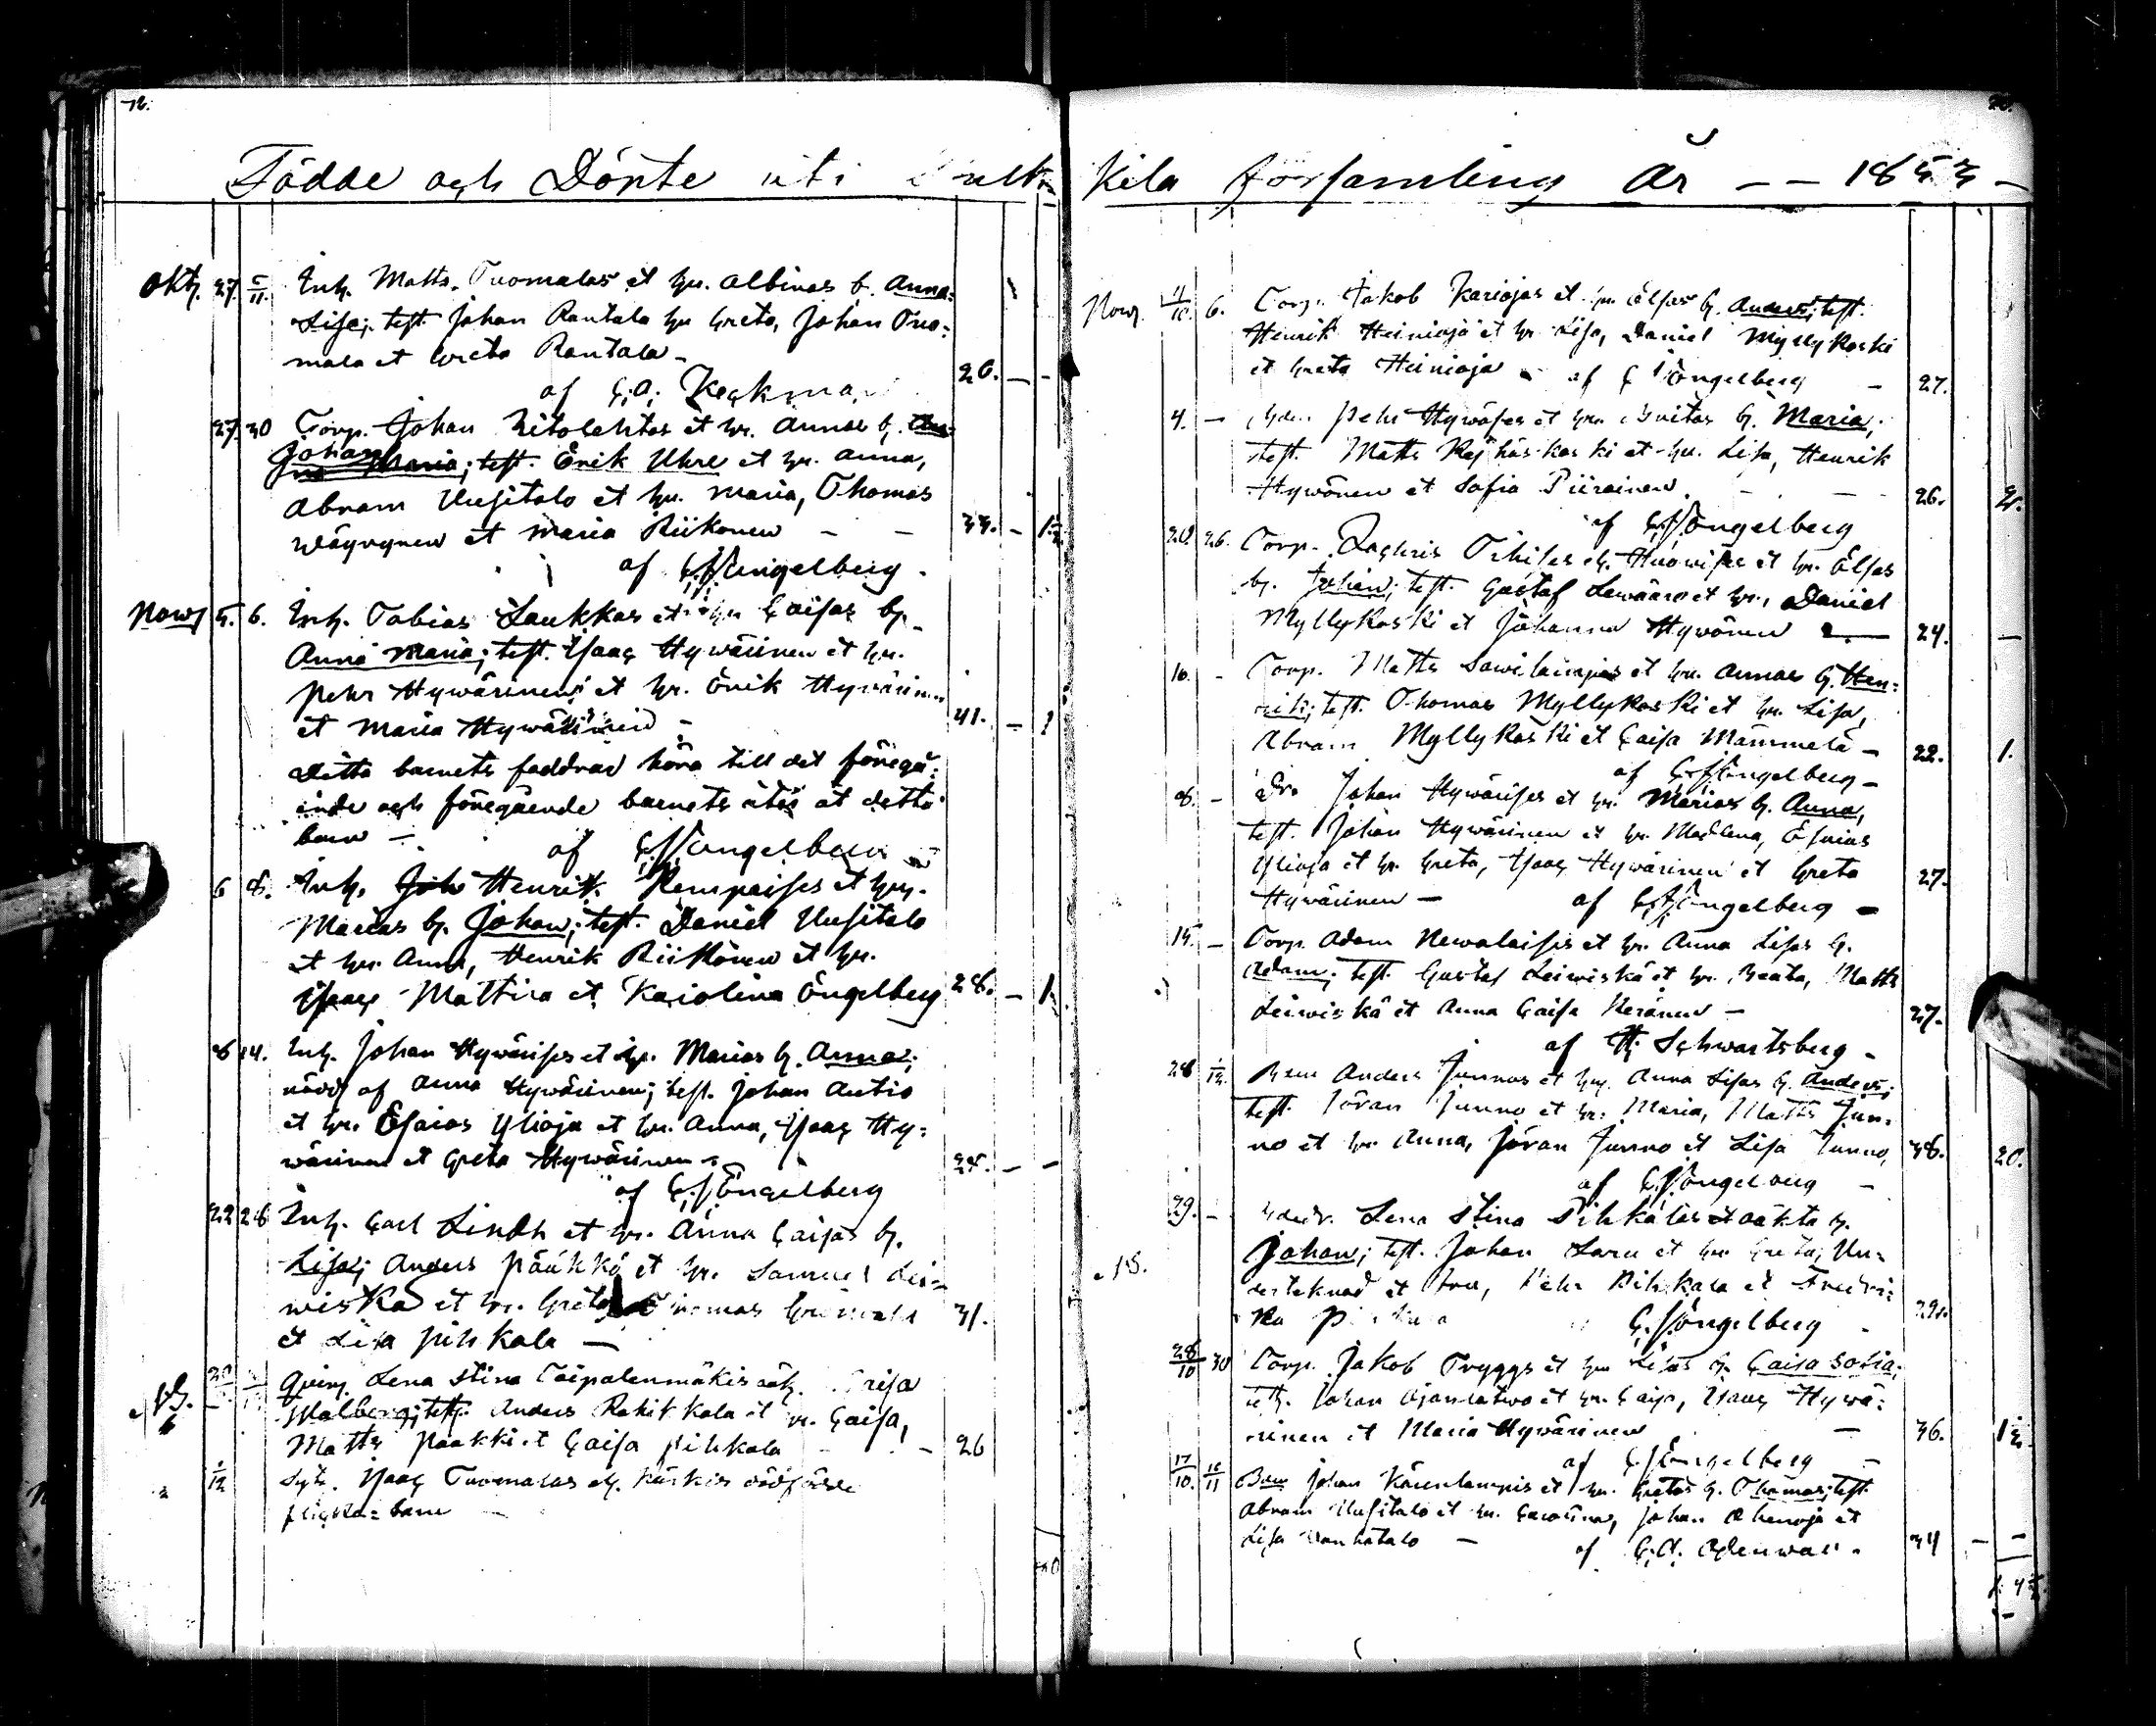 72.
Födde och Döpte uti Pulkkila församling År -- 1853 -
Okt. 27. 5/11. Inh. Matts Tuomalas et hu. Albinas b. Anna
Lisa; test. Johan Rantala hu Greta, Johan Tuo:
mala et Greta Rantala - 20. - -
af C.O. Keckman
27. 30 Torp. Johan Ritolehtos et hu. Annas b.
Johan Maria; test. Erik Uhre et hu. Anna,
Abram Uusitalo et hu. Maria, Thomas
Wäyrynen et Maria Riikonen - - 33. -
af C.J. Engelberg.
Nov. 5. 6. Inh. Tobias Laukkas et hu Caisas b.
Anna Maria; test. Isaac Hywärinen et hu.
Pehr Hywärinen et hu. Erik Hywärinen
et Maria Hywärinen - 41. - 1
Detta barnets faddrar höra till det föregå:
ende och föregående barnets åter åt detta
barn -
af C.J. Engelberg
6 8. Inh. Henrik Kempaises et hu.
Marias b. Johan; test. Daniel Uusitalo
et hu. Anna, Henrik Riikonen et hu.
Isaac Mattila et Karolina Engelberg 28. - 1
8 14. Inh. Johan Hywärises et hu. Marias b. Anna;
nöd. af Anna Hywärinen; test. Johan Autio
et hu. Esaias Ylioja et hu. Anna, Isaac Hy:
wärinen et Greta Hywärinen - 24. - -
af C.J. Engelberg
22 28 Inh. Carl Lindh et hu. Anna Caisas b.
Lisa; Anders Pääkkö et hu. Samuel Lei=
wiskä et hu. Greta, Thomas
et Lisa Pihkala - 31.
Qvinj. Lena Stina Taipalenmäkis
Malberg; test. Anders Rahikkala et hu. Caisa,
Matts Paakki et Caisa Pihkala - - 26
1/12 Isaac Tuomalas dödfödde
flicko=barn -
Nov. 4/10. 6. Torp. Jakob Kariojas et hu Elsas b. Anders; test.
Henrik Heinioja et hu. Lisa, Daniel Myllykoski
et Greta Heinioja - af C J Engelberg - 27.
4. - Pehr Hywöses et hu. Britas b. Maria;
test. Matts et hu. Lisa, Henrik
Hywönen et Sofia Piirainen. - - 26. 2.
af C.J. Engelberg
20. 26. Torp. Zachris et hu. Elsas
b. Johan; test. Gustaf et hu., Daniel
Myllykoski et Johanna Hywönen - 24. -
16. - Torp. Matts et hu. Annas b. Hen:
rik; test. Thomas Myllykoski et hu. Lisa,
Abram Myllykoski et Caisa Mämmelä - 22. 1.
af C.J. Engelberg -
8. - Dr. Johan Hywärises et hu. Marias b. Anna,
test. Johan Hywärinen et hu. Madlena, Esaias
Ylioja et hu. Greta, Isaac Hywärinen et Greta
Hywärinen - af C.J. Engelberg - 27.
15. - Torp. Adam Newalaises et hu. Anna Lisas b.
Adam; test. Gustaf Leiwiskä et hu. Beata, Matts
Leiwiskä et Anna Caisa Keränen - 27.
af H. Schwartsberg -
28 1/12. Anders Junnos et hu. Anna Lisas b. Anders;
test. Jöran Junno et hu. Maria, Matts Jun=
no et hu. Anna, Jöran Junno et Lisa Junno, 38. 20.
af C.J. Engelberg -
29. - Lena Stina Pihkalas oäkta b.
Johan; test. Johan Saru et hu Greta, Un=
derteknad et Fru, Pehr Pihkala et Fredri:
ka C. J. Engelberg 29.
28/10 30 Torp. Jakob Tryggs et hu Lisas b. Caisa Sofia;
test. Johan Ojanlatwa et hu. Caisa, Isaac Hywä:
rinen et Maria Hywärinen - 36.
af C.J. Engelberg -
17/10. 10/11 Johan et hu. Gretas b. Thomas; test.
Abram Uusitalo et hu. Carolina, Johan Ahenoja et
Lisa Wanhatalo - af 34 - -